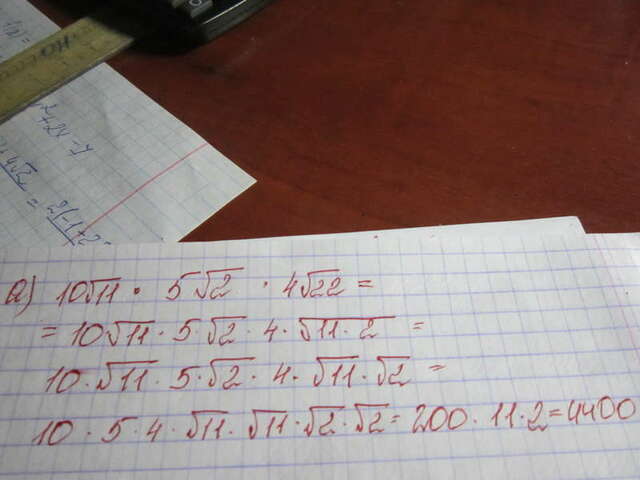 а) 10√11 · 5√2 · 4√22 =
= 10√11 · 5·√2 · 4 · √11·2 =
10·√11 · 5·√2 · 4·√11·√2 =
10 · 5 · 4 · √11 · √11 · √2 · √2 = 200 · 11 · 2 = 4400